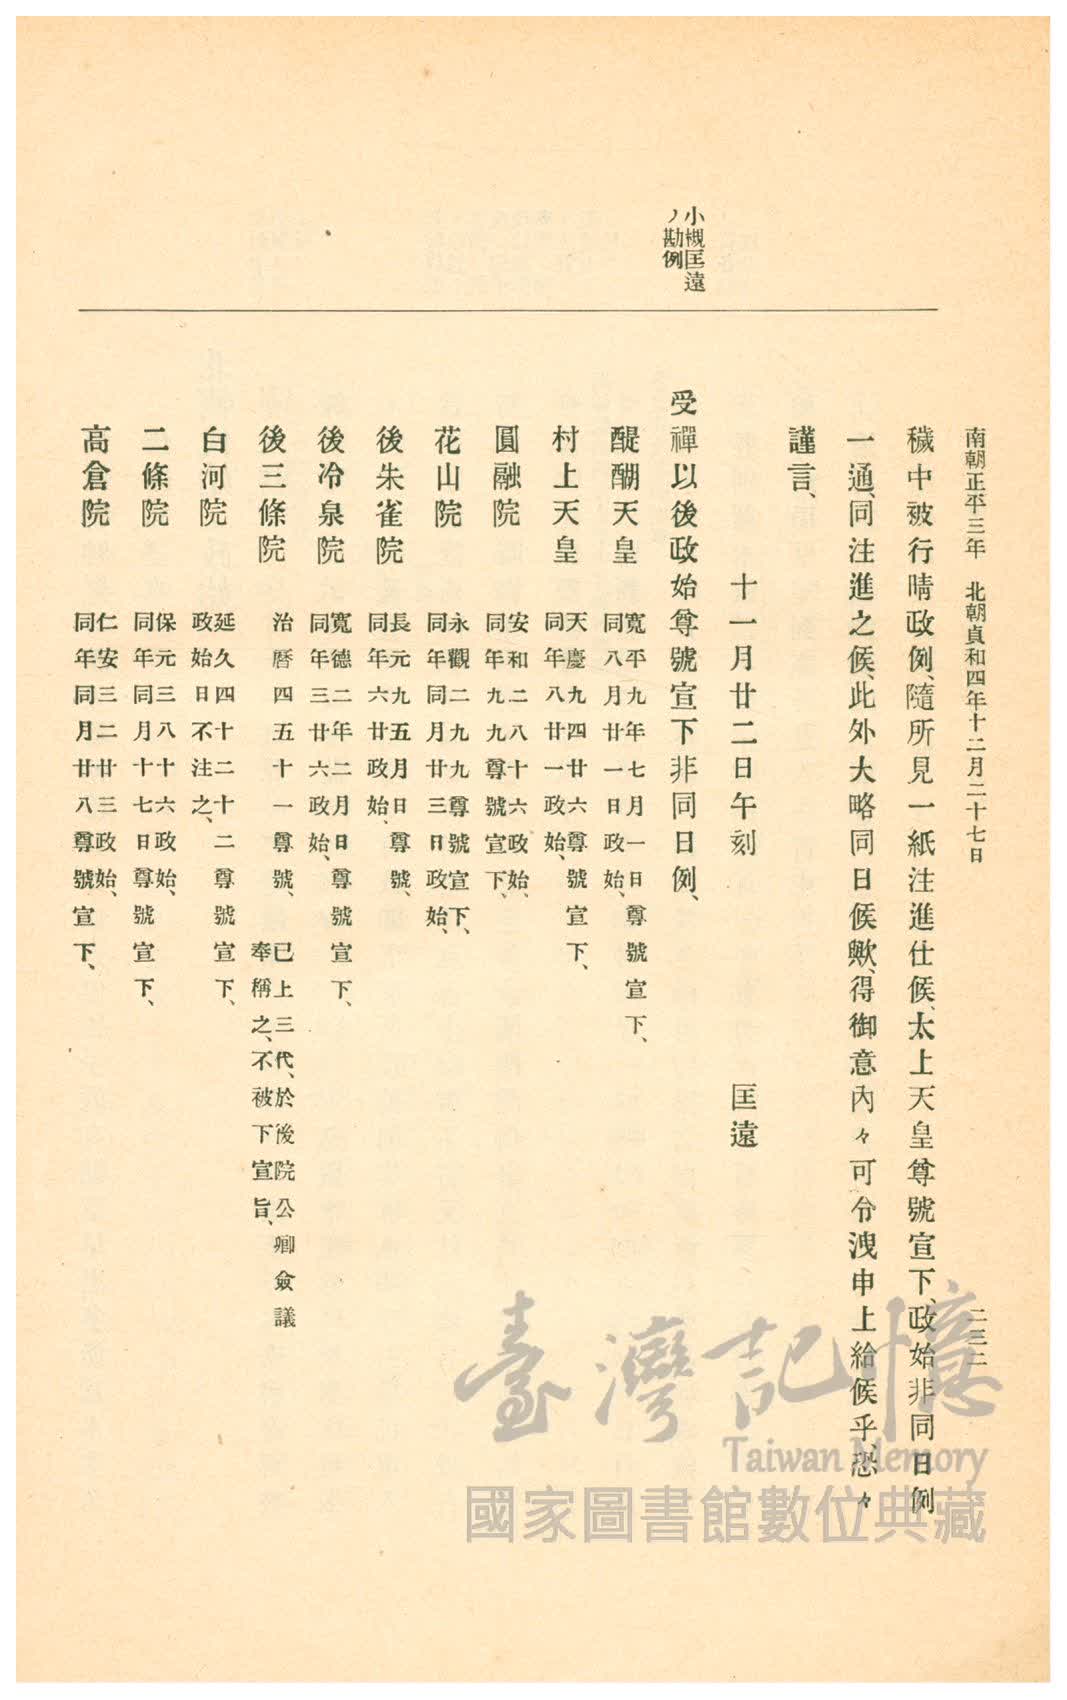 南朝正平三年　北朝貞和四年十二月二十七日
二三二
小槻匡遠
ノ勘例
穢中被行晴政例、隨所見一紙注進仕候、太上天皇尊號宣下、政始非同日例
一通、同注進之候、此外大略同日候歟、得御意內々可令洩申上給候乎、恐々
謹言、
十一月廿二日午刻　匡遠
受禪以後政始尊號宣下非同日例、
醍醐天皇
寬平九年七月一日尊號宣下、
同八月廿一日政始、
村上天皇
天慶九四廿六尊號宣下、
同年八廿一政始、
圓融院
安和二八十六政始、
同年九九尊號宣下、
花山院
永觀二九九尊號宣下、
同年同月廿三日政始、
後朱雀院
長元九五月日尊號、
同年六廿政始、
後冷泉院
寬德二年二月日尊號宣下、
同年三廿六政始、
後三條院
治曆四五十一尊號、
已上三代、於後院公卿僉議
奉稱之、不被下宣旨、
白河院
延久四十二十二尊號宣下、
政始日不注之、
二條院
保元三八十六政始、
同年同月十七日尊號宣下、
高倉院
仁安三二廿三政始、
同年同月廿八尊號宣下、
臺灣記憶
Taiwan Memory
國家圖書館數位典藏